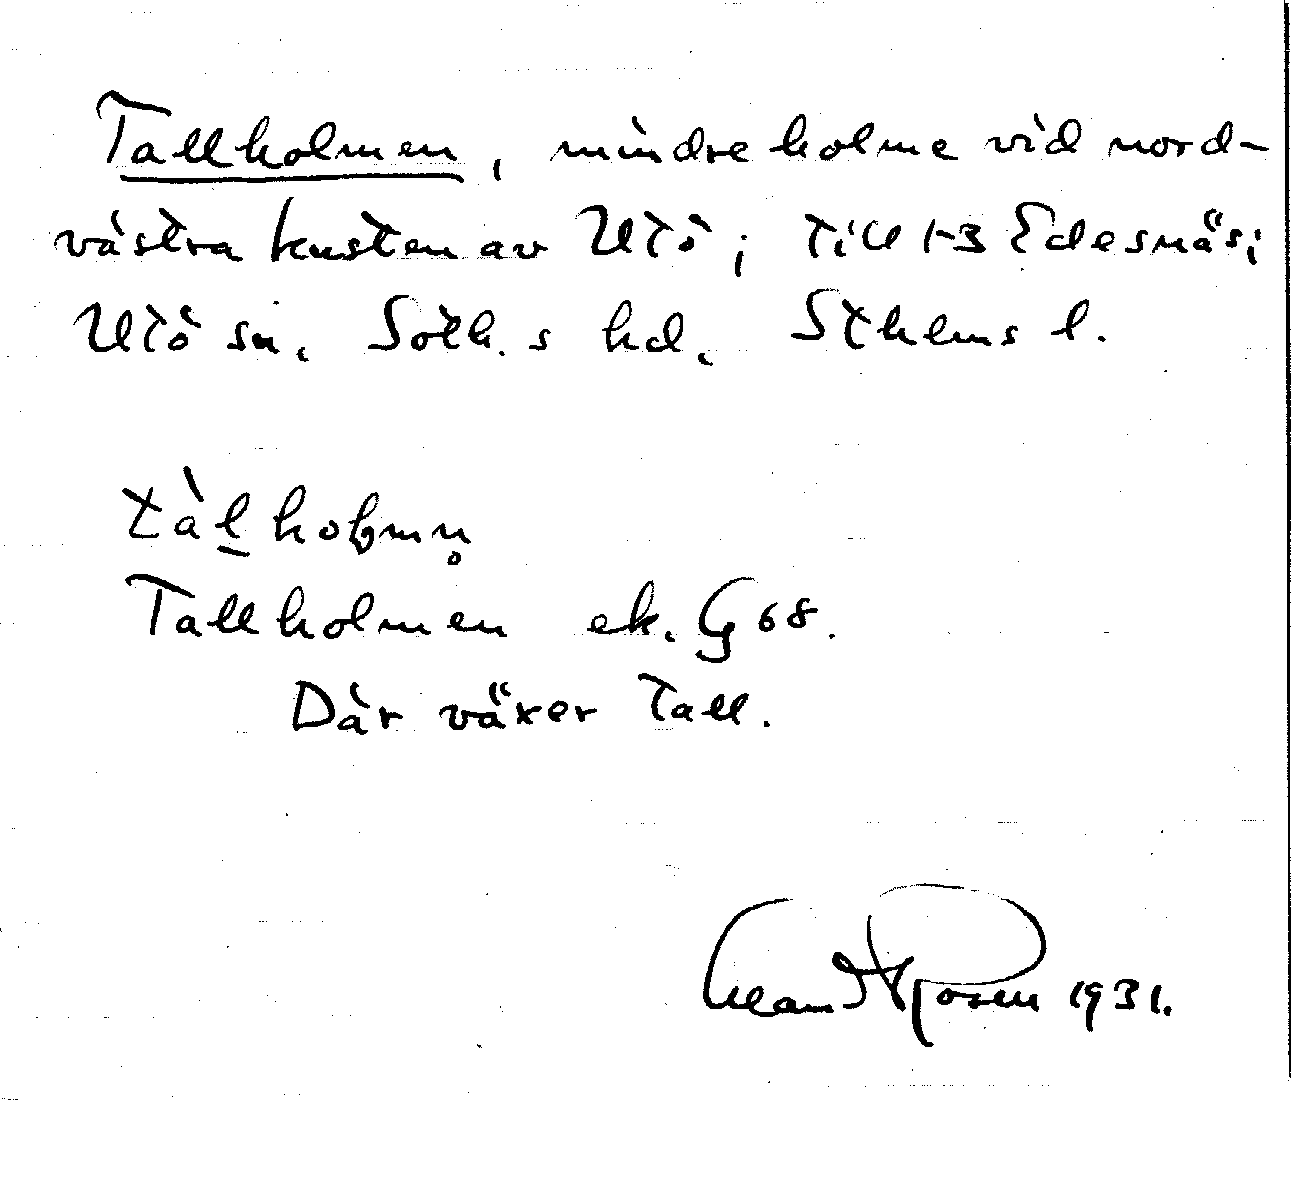 Tallholmen, mindre holme vid nord-
västra kusten av Utö; till 1-3 Edesnäs;
Utö sn. Soth.s hd. Sthlms l.
tàl̠hoɫmn̥
Tallholmen ek. G 68.
Där växer tall.
Rosen 1931.